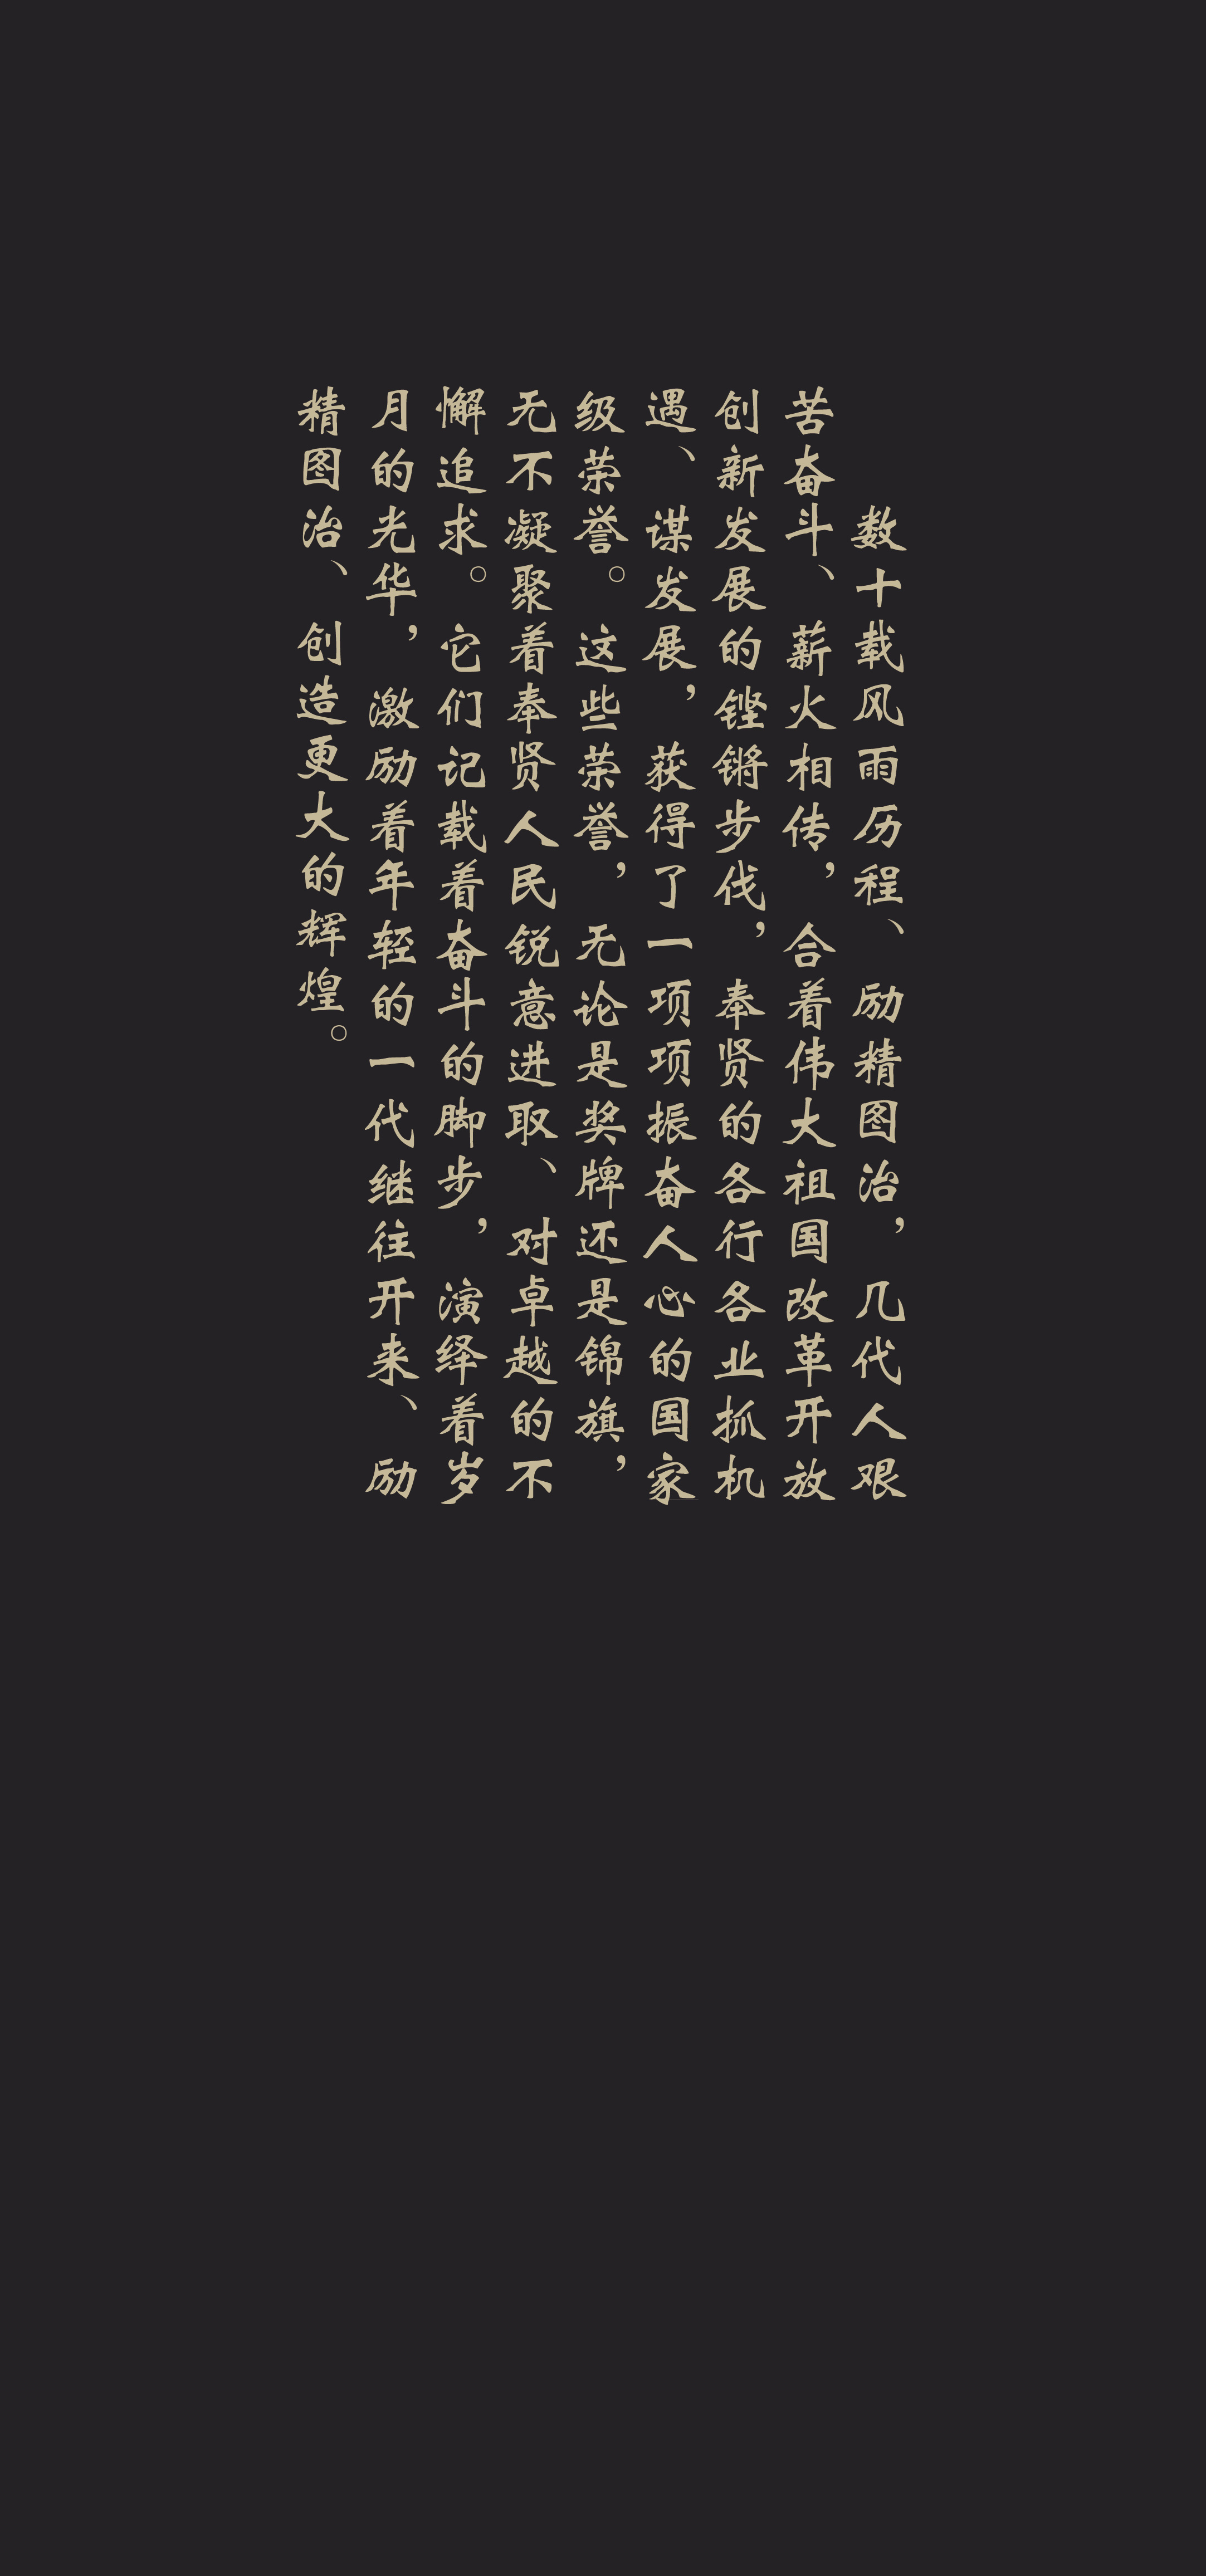 数十载风雨历程、励精图治，几代人艰
苦奋斗、薪火相传，合着伟大祖国改革开放
创新发展的铿锵步伐，奉贤的各行各业抓机
遇、谋发展，获得了一项项振奋人心的国家
级荣誉。这些荣誉，无论是奖牌还是锦旗，
无不凝聚着奉贤人民锐意进取、对卓越的不
懈追求。它们记载着奋斗的脚步，演绎着岁
月的光华，激励着年轻的一代继往开来、励
精图治、创造更大的辉煌。